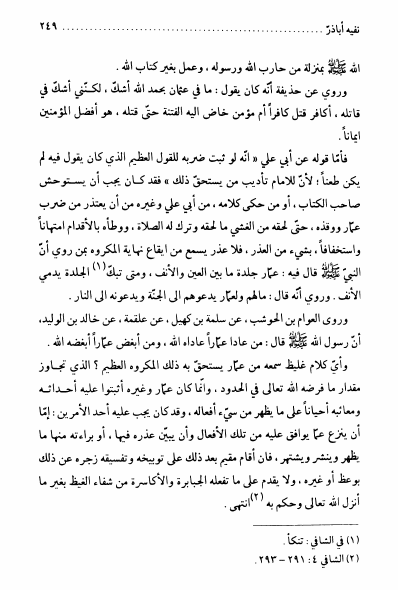 نفيه أباذرّ ........................................................ ٢٤٩
الله ﷺ بمنزلة من حارب الله ورسوله ، وعمل بغير كتاب الله .
وروي عن حذيفة أنّه كان يقول : ما في عثمان بحمد الله أشكّ ، لكنّني أشكّ في
قاتله ، أكافر قتل كافراً أم مؤمن خاض اليه الفتنة حتّى قتله ، هو أفضل المؤمنين
ايماناً .
فأمّا قوله عن أبي علي « انّه لو ثبت ضربه للقول العظيم الذي كان يقول فيه لم
يكن طعناً ؛ لأنّ للامام تأديب من يستحقّ ذلك » فقد كـان يجب أن يسـتوحش
صاحب الكتاب ، أو من حكى كلامه ، من أبي علي وغيره من أن يعتذر من ضرب
عمّار ووقذه ، حتّى لحقه من الغشي ما لحقه وترك له الصلاة ، ووطأه بالأقدام امتهاناً
واستخفافاً ، بشيء من العذر ، فلا عذر يسمع من ايقاع نهاية المكروه بمن روي أنّ
النبيّ ﷺ قال فيه : عمّار جلدة ما بين العين والأنف ، ومتى تبكّ(١) الجلدة يدمي
الأنف . وروي أنّه قال : مالهم ولعمّار يدعوهم الى الجنّة ويدعونه الى النار .
وروى العوام بن الحوشب ، عن سلمة بن كهيل ، عن علقمة ، عن خالد بن الوليد،
أنّ رسول الله ﷺ قال : من عادا عمّاراً عاداه الله ، ومن أبغض عمّاراً أبغضه الله .
وأيّ كلام غليظ سمعه من عمّار يستحقّ به ذلك المكروه العظيم ؟ الذي تجـاوز
مقدار ما فرضه الله تعالى في الحدود ، وانّما كان عمّار وغيره أثبتوا عليه أحـداثـه
ومعائبه أحياناً على ما يظهر من سيّء أفعاله ، وقد كان يجب عليه أحد الأمرين : إمّا
أن ينزع عمّا يوافق عليه من تلك الأفعال وأن يبيّن عذره فيها ، أو براءته منها ما
يظهر وينشر ويشتهر ، فان أقام مقيم بعد ذلك على توبيخه وتفسيقه زجره عن ذلك
بوعظ أو غيره ، ولا يقدم على ما تفعله الجبابرة والأكاسرة من شفاء الغيظ بغير ما
أنزل الله تعالى وحكم به (٢)انتهى .
(١) في الشافي : تنكأ .
(٢) الشافي ٤ : ٢٩١ - ٢٩٣ .